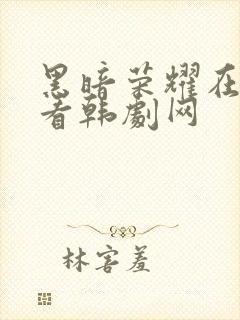 黑暗荣耀在
看韩剧网
林害羞